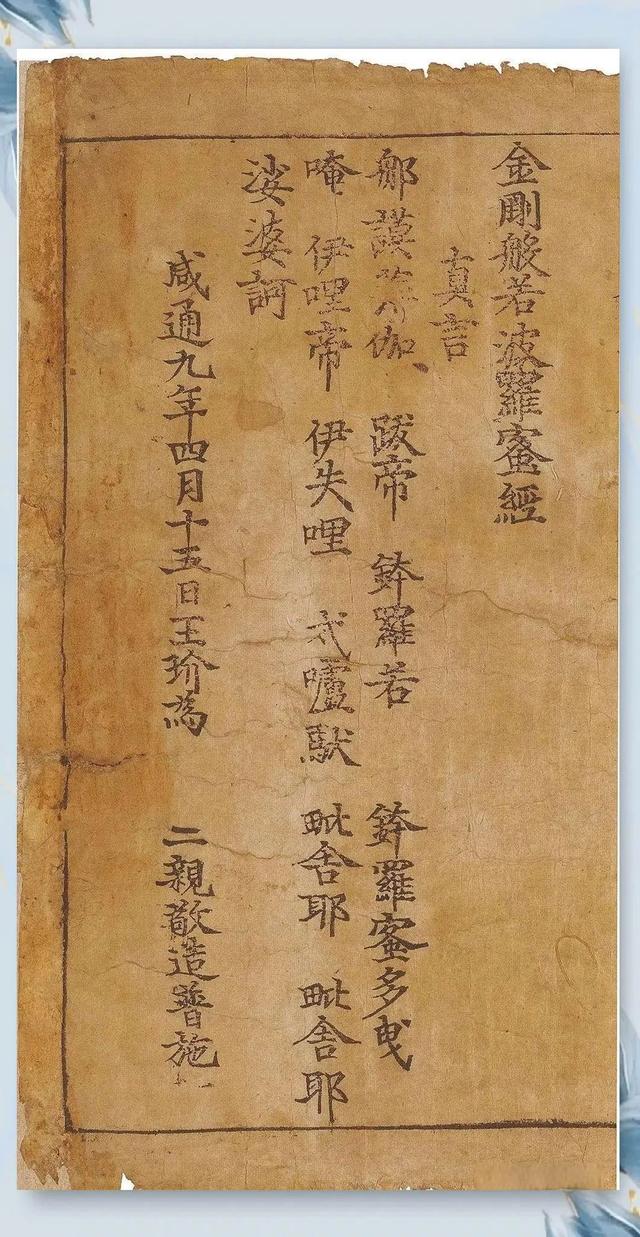 金剛般若波羅蜜經
真言
那謨婆伽 跋帝 鉢羅若 鉢羅蜜多曳
唵 伊哩帝 伊失哩 戍嚧馱 毗舍耶 毗舍耶
娑婆訶
咸通九年四月十五日王玠為 二親敬造普施